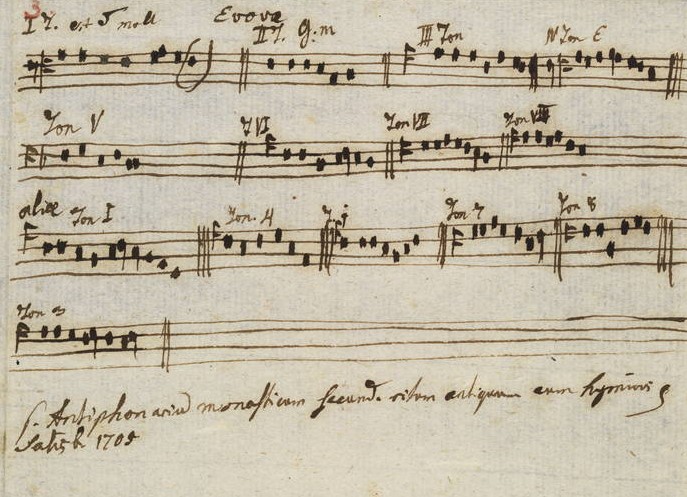 3.
I T. est D moll Evovæ
II T. G: m III Ton IV Ton E
Ton V T VI Ton VII Ton VIII
aliæ Ton I Ton. 4 Ton 7 Ton 8
Ton 3
S. Antiphonariū monasticum secund. ritum antiquum cum hymnis
Salisb. 1705